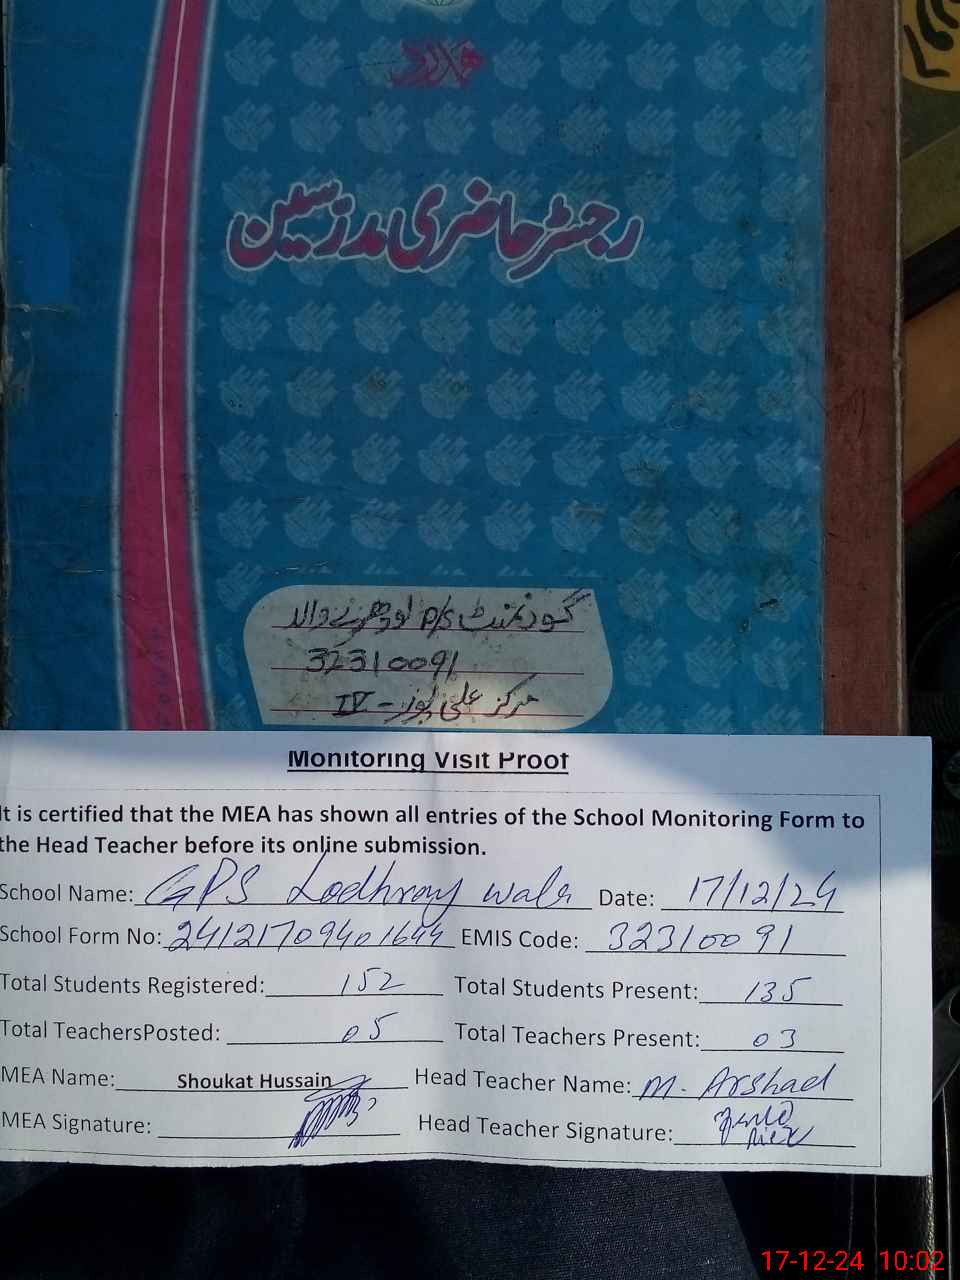 رجسٹر حاضری مدرسین
گورنمنٹ P/S لودھرنے والہ
32310091
مرکز علی پور - IV
Monitoring Visit Proof
It is certified that the MEA has shown all entries of the School Monitoring Form to
the Head Teacher before its online submission.
School Name: GPS Lodhray wala Date: 17/12/24
School Form No: 24121709401644 EMIS Code: 32310091
Total Students Registered: 152 Total Students Present: 135
Total TeachersPosted: 05 Total Teachers Present: 03
MEA Name: Shoukat Hussain Head Teacher Name: M. Arshad
MEA Signature: Head Teacher Signature:
17-12-24 10:02